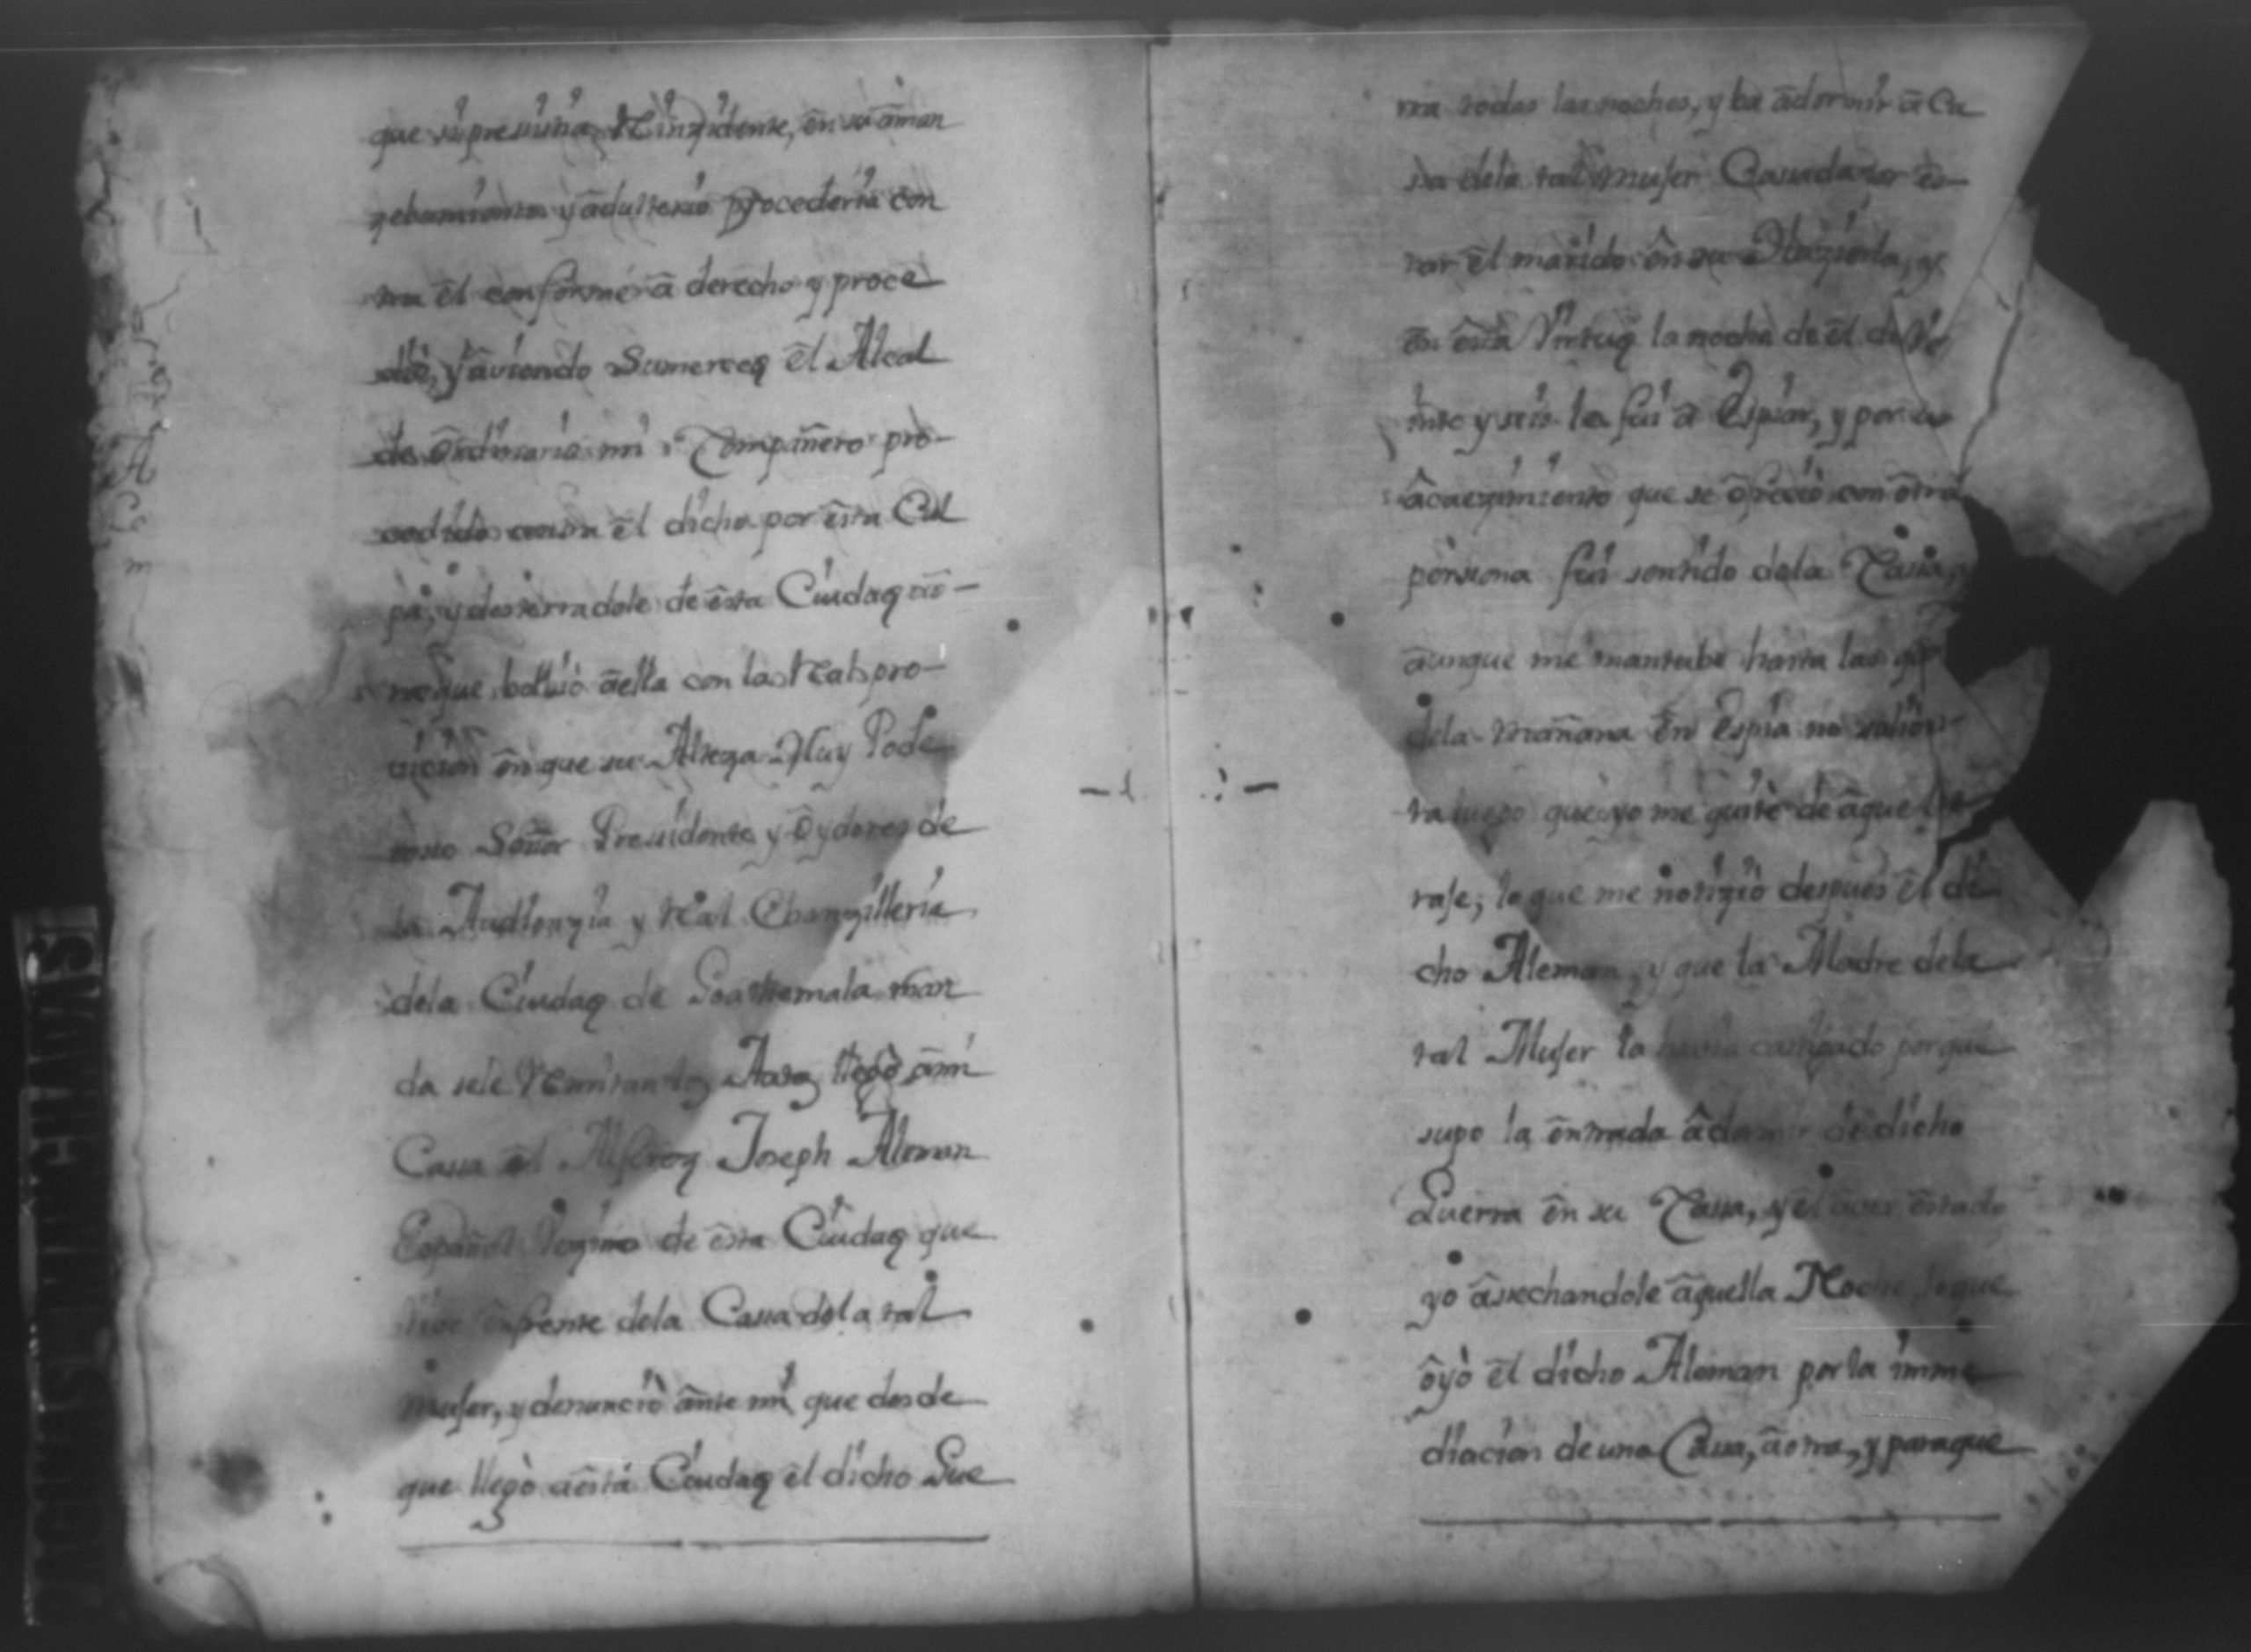 que si presumia Reinzidente, ên su âman
zebamiento y âdulterio procederia con
tra êl conforme â derecho y proce
dió, y âviendo Sumerced êl Alcal
de Ordinario mi Compañero pro-
cedido contra êl dicho por êsta Cul
pa, y desterradole de êsta Ciudad
que bolvió âella con la Real pro-
vicion ên que su Alteza Muy Pode
roso Señor Presidente y Oydores de
la Audienzia y Real Chanzilleria
dela Ciudad de Goathemala man
da sele Remitan los Autos llegó âmi
Casa êl Alferez Joseph Aleman
Español Vezino de êsta Ciudad que
vive enfrente dela Casa dela tal
Muger, y denunció ânte mi que desde
que llegó aêsta Ciudad êl dicho Gue
rra todas las noches, y ba âdormir â Ca
sa dela tal muger Casada por ês-
tar êl marido ên su Hazienda, y
ên êsta Virtud la noche de êl dia Ve
inte y seis le fui â Espiar, y por un
âcaezimiento que se ôfreció con ôtra
persona fui sentido dela Casa,
âunque me mantube hasta las
dela mañana ên Espia no salió has-
ta luego que yo me quité de âquel pa
raje; lo que me notizió despues êl di
cho Aleman, y que la Madre dela
tal Muger la havia castigado porque
supo la êntrada âdormir de dicho
Guerra ên su Casa, y êl aver êstado
yo âsechandole âquella Noche loque
ôyó êl dicho Aleman por la inme
diacion de una Casa, âotra, y paraque